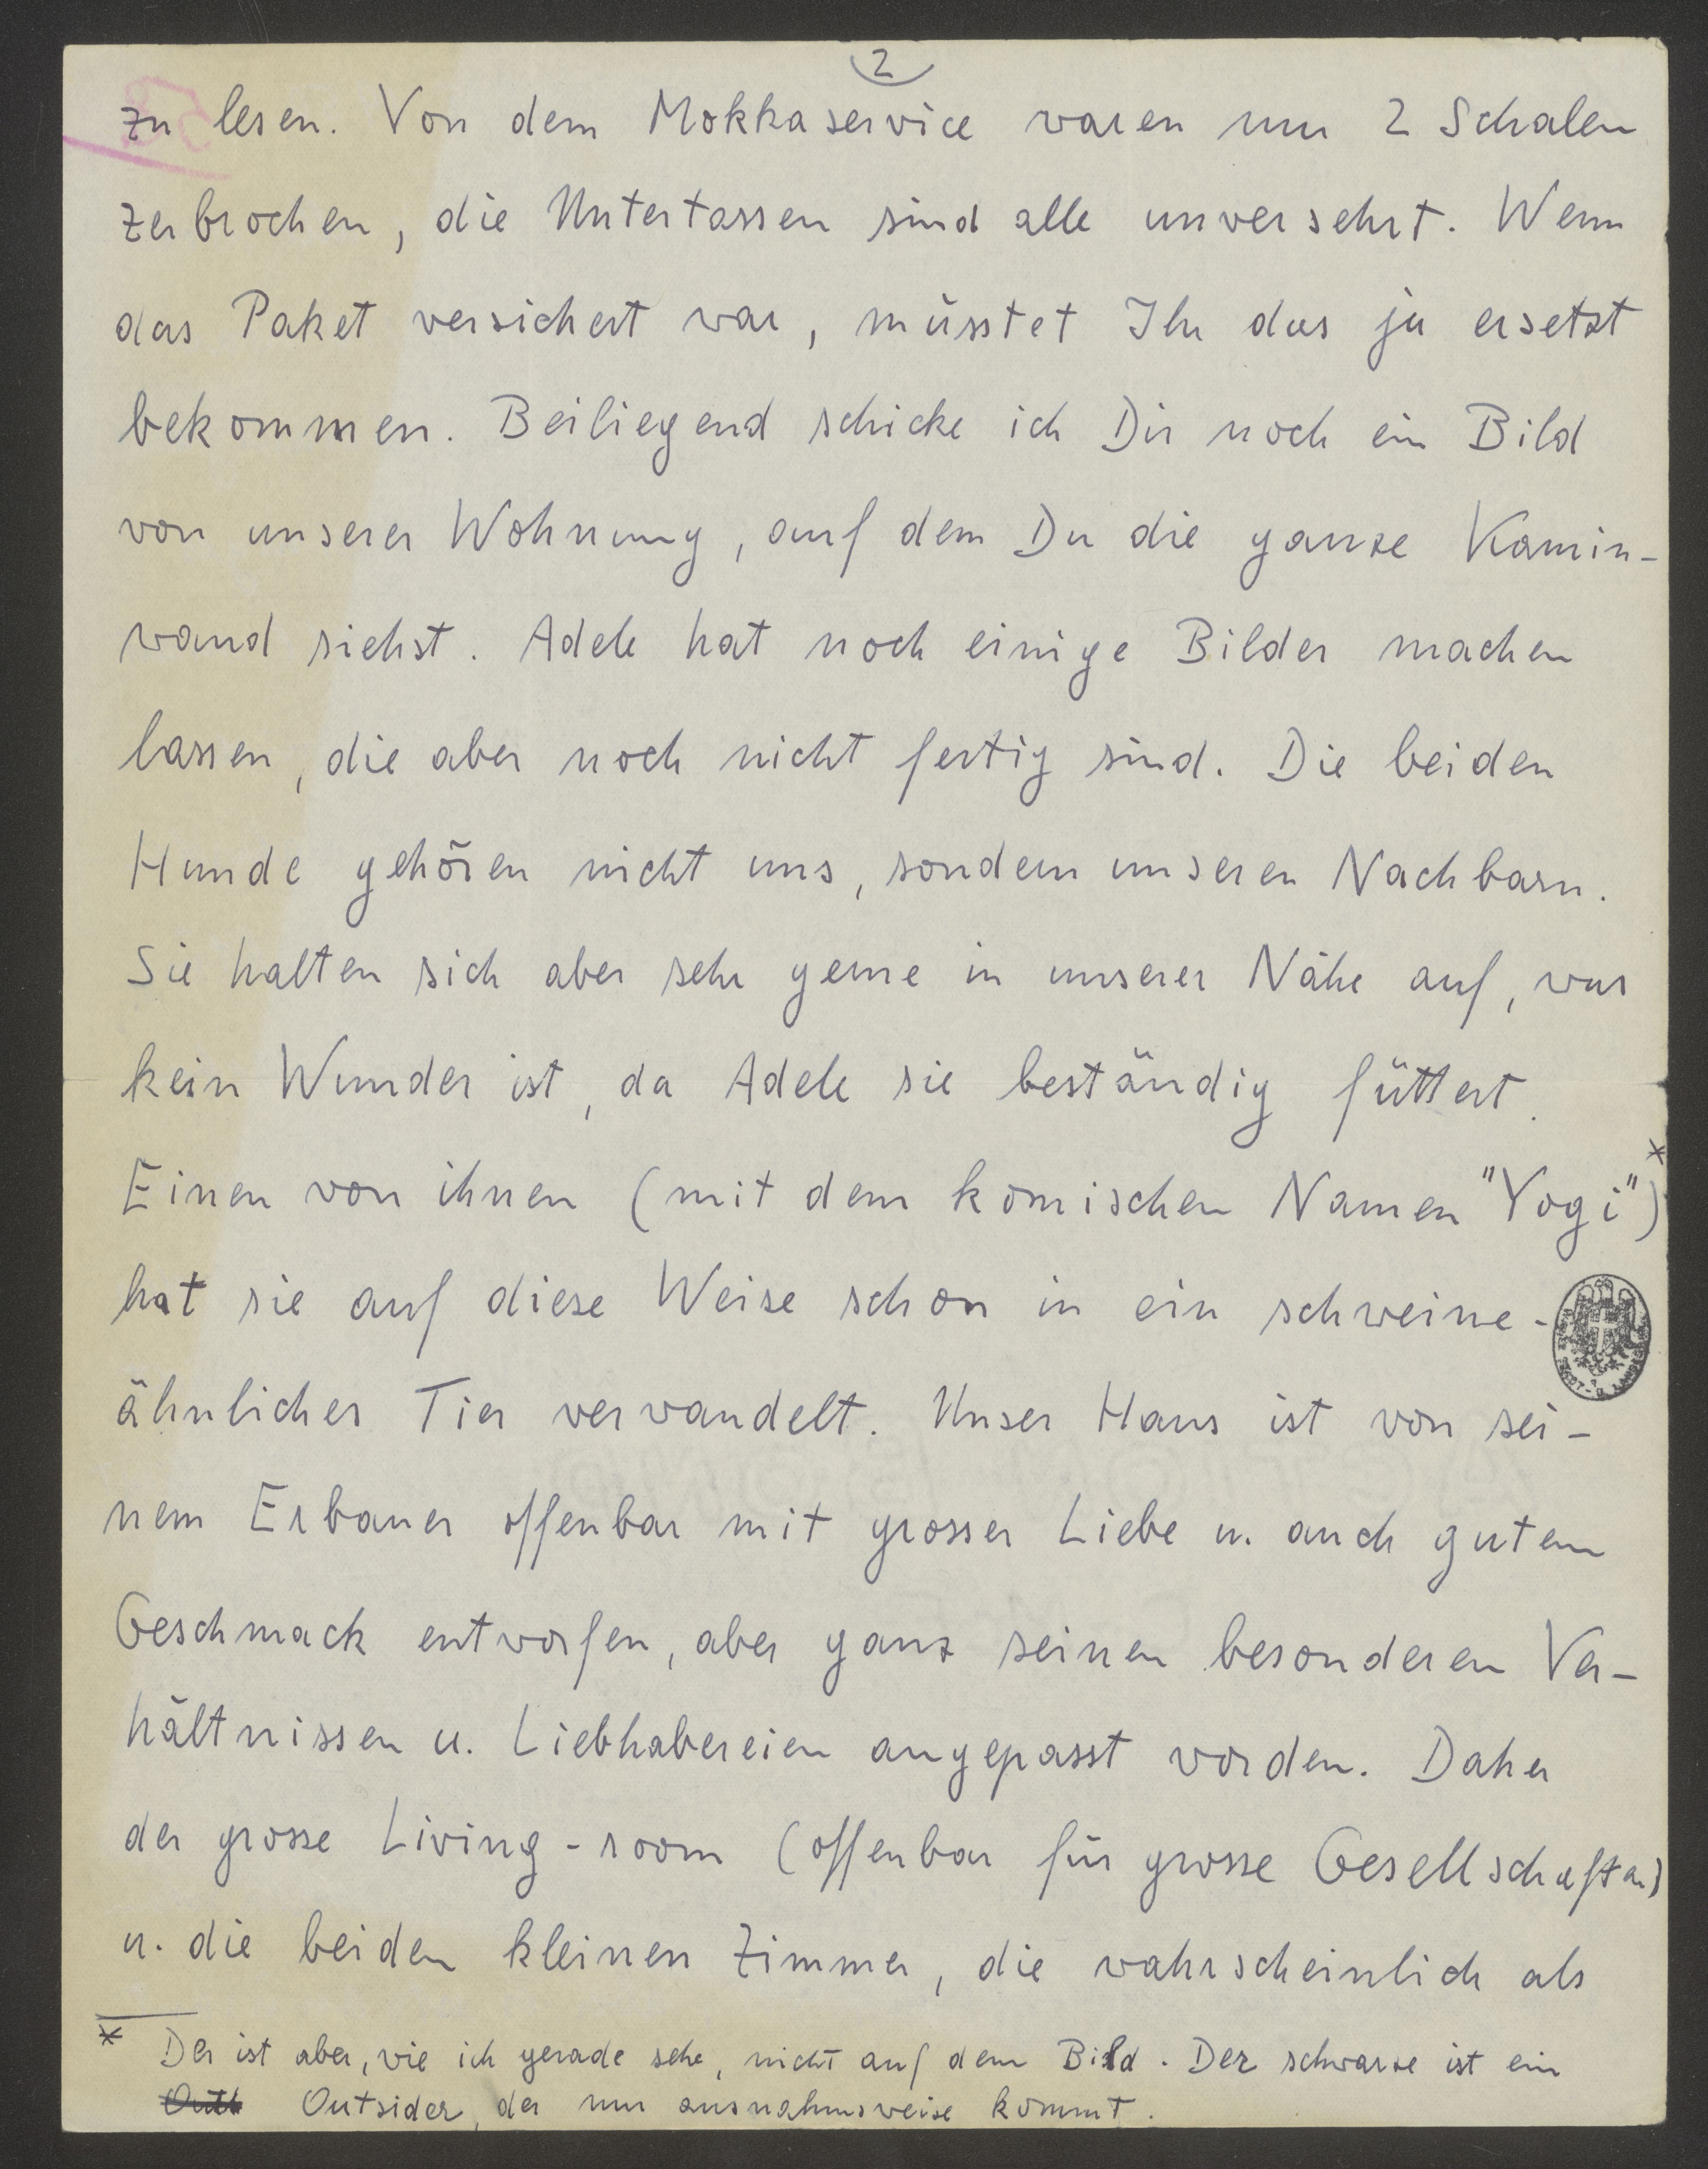 2
zu lesen. Von dem Mokkaservice waren nur 2 Schalen
zerbrochen, die Untertassen sind alle unversehrt. Wenn
das Paket versichert war, müsstet Ihr das ja ersetzt
bekommen. Beiliegend schicke ich Dir noch ein Bild
von unserer Wohnung, auf dem Du die ganze Kamin-
wand siehst. Adele hat noch einige Bilder machen
lassen, die aber noch nicht fertig sind. Die beiden
Hunde gehören nicht uns, sondern unseren Nachbarn.
Sie halten sich aber sehr gerne in unserer Nähe auf, was
kein Wunder ist, da Adele sie beständig füttert.
Einen von ihnen (mit dem komischen Namen "Yogi")*
hat sie auf diese Weise schon in ein schweine-
ähnliches Tier verwandelt. Unser Haus ist von sei-
nem Erbauer offenbar mit grosser Liebe u. auch gutem
Geschmack entworfen, aber ganz seinen besonderen Ver-
hältnissen u. Liebhabereien angepasst worden. Daher
der grosse Living-room (offenbar für grosse Gesellschaften)
u. die beiden kleinen Zimmer, die wahrscheinlich als
* Der ist aber, wie ich gerade sehe, nicht auf dem Bild. Der schwarze ist ein
Outsider, der nur ausnahmsweise kommt.